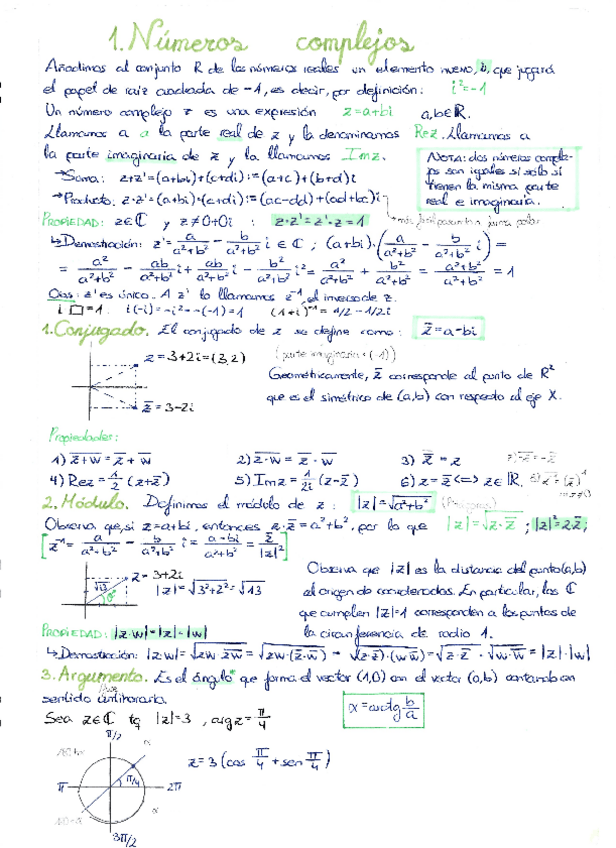 1. Números complejos
Añadimos al conjunto R de los números reales un elemento nuevo, i, que jugará
el papel de raíz cuadrada de -1, es decir, por definición: i²=-1
Un número complejo z es una expresión z=a+bi a,b∈ℝ.
Llamamos a a la parte real de z y la denominamos Re z. Llamamos a
la parte imaginaria de z y la llamamos Im z.
NOTA: dos números comple-
jos son iguales si sólo si
tienen la misma parte
real e imaginaria.
→Suma: z+z'=(a+bi)+(c+di):=(a+c)+(b+d)i
→Producto: z·z'=(a+bi)·(c+di):=(ac-dd)+(ad+bc)i
PROPIEDAD: z∈ℂ y z≠0+0i : z·z'=z'·z=1
↳Demostración: z'=a/(a²+b²) - b/(a²+b²) i ∈ ℂ ; (a+bi)·(a/(a²+b²) - b/(a²+b²) i)=
= a²/(a²+b²) - ab/(a²+b²) i + ab/(a²+b²) i - b²/(a²+b²) i² = a²/(a²+b²) + b²/(a²+b²) = (a²+b²)/(a²+b²) = 1
Obs: z' es único. A z' lo llamamos z⁻¹, el inverso de z.
i □=1. i(-i)=-i²=-(-1)=1 (1+i)⁻¹=1/2-1/2i
1. Conjugado. El conjugado de z se define como: z̄=a-bi
(parte imaginaria · (-1))
z=3+2i=(3,2)
z̄=3-2i
Geométricamente, z̄ corresponde al punto de R²
que es el simétrico de (a,b) con respecto al eje X.
Propiedades:
1) z̄+w̄=z̄+w̄ 2) z·w = z̄·w̄ 3) z̿ = z
4) Re z=1/2 (z+z̄) 5) Im z=1/2i (z-z̄) 6) z=z̄ ⟺ z∈ℝ
2. Módulo. Definimos el módulo de z: |z|=√(a²+b²)
Observa que, si z=a+bi, entonces z·z̄=a²+b², por lo que |z|=√(z·z̄) ; |z|²=z·z̄;
[z⁻¹=a/(a²+b²) - b/(a²+b²) i = (a-bi)/(a²+b²) = z̄/|z|²]
z=3+2i
|z|=√(3²+2²)=√13
√13
Observa que |z| es la distancia del punto (a,b)
al origen de coordenadas. En particular, los ℂ
que cumplen |z|=1 corresponden a los puntos de
la circunferencia de radio 1.
PROPIEDAD: |z·w|=|z|·|w|
↳Demostración: |z·w|=√(zw·z̄w̄)=√(zw·(z̄·w̄)) = √((z·z̄)·(w·w̄))=√(z·z̄) · √(w·w̄)=|z|·|w|
3. Argumento. Es el ángulo que forma el vector (1,0) con el vector (a,b) contando en
sentido antihorario.
Sea z∈ℂ tq |z|=3, arg z=π/4
α=arctg b/a
z=3(cos π/4 + sen π/4)
π/2
α
π
π/4
2π
α
3π/2